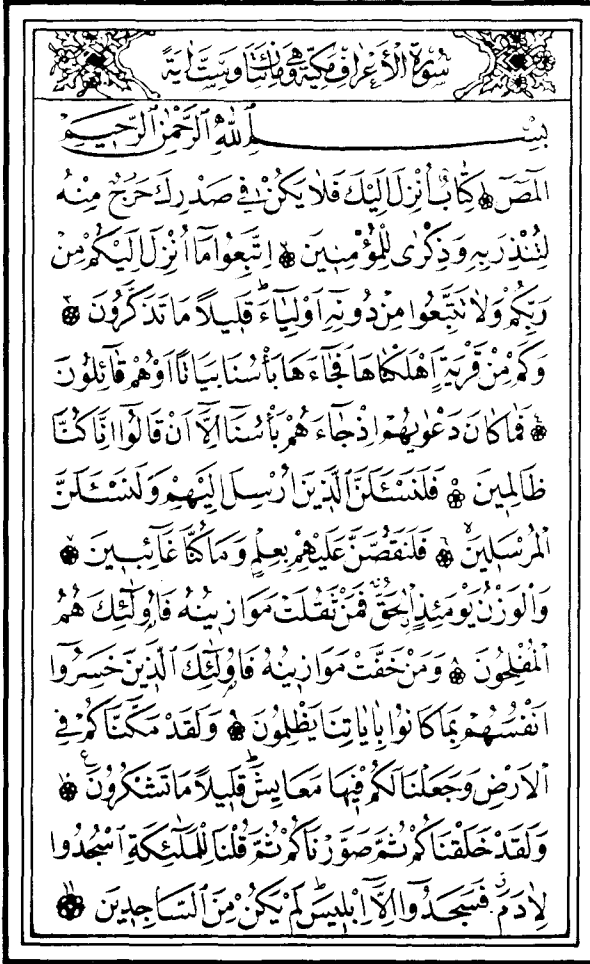 سُورَةُ الْاَعْرَافِ مَكِّيَّةٌ وَهِيَ مِائَتَانِ وَسِتُّ اٰيَةً
بِسْمِ اللّٰهِ الرَّحْمٰنِ الرَّحِيمِ
الٓمٓصٓ ۝ كِتَابٌ اُنْزِلَ اِلَيْكَ فَلَا يَكُنْ فِي صَدْرِكَ حَرَجٌ مِنْهُ
لِتُنْذِرَ بِهِ وَذِكْرٰى لِلْمُؤْمِنِينَ ۝ اِتَّبِعُوا مَٓا اُنْزِلَ اِلَيْكُمْ مِنْ
رَبِّكُمْ وَلَا تَتَّبِعُوا مِنْ دُونِهِٓ اَوْلِيَٓاءَۜ قَلِيلًا مَا تَذَكَّرُونَ ۝
وَكَمْ مِنْ قَرْيَةٍ اَهْلَكْنَاهَا فَجَٓاءَهَا بَأْسُنَا بَيَاتًا اَوْ هُمْ قَٓائِلُونَ
۝ فَمَا كَانَ دَعْوٰيهُمْ اِذْ جَٓاءَهُمْ بَأْسُنَٓا اِلَّٓا اَنْ قَالُٓوا اِنَّا كُنَّا
ظَالِمِينَ ۝ فَلَنَسْـَٔلَنَّ الَّذِينَ اُرْسِلَ اِلَيْهِمْ وَلَنَسْـَٔلَنَّ
الْمُرْسَلِينَۙ ۝ فَلَنَقُصَّنَّ عَلَيْهِمْ بِعِلْمٍ وَمَا كُنَّا غَٓائِبِينَ ۝
وَالْوَزْنُ يَوْمَئِذٍ الْحَقُّۚ فَمَنْ ثَقُلَتْ مَوَازِينُهُ فَاُولٰٓئِكَ هُمُ
الْمُفْلِحُونَ ۝ وَمَنْ خَفَّتْ مَوَازِينُهُ فَاُولٰٓئِكَ الَّذِينَ خَسِرُٓوا
اَنْفُسَهُمْ بِمَا كَانُوا بِاٰيَاتِنَا يَظْلِمُونَ ۝ وَلَقَدْ مَكَّنَّاكُمْ فِي
الْاَرْضِ وَجَعَلْنَا لَكُمْ فِيهَا مَعَايِشَۜ قَلِيلًا مَا تَشْكُرُونَ۟ ۝
وَلَقَدْ خَلَقْنَاكُمْ ثُمَّ صَوَّرْنَاكُمْ ثُمَّ قُلْنَا لِلْمَلٰٓئِكَةِ اسْجُدُوا
لِاٰدَمَۗ فَسَجَدُٓوا اِلَّٓا اِبْلِيسَۜ لَمْ يَكُنْ مِنَ السَّاجِدِينَ ۝